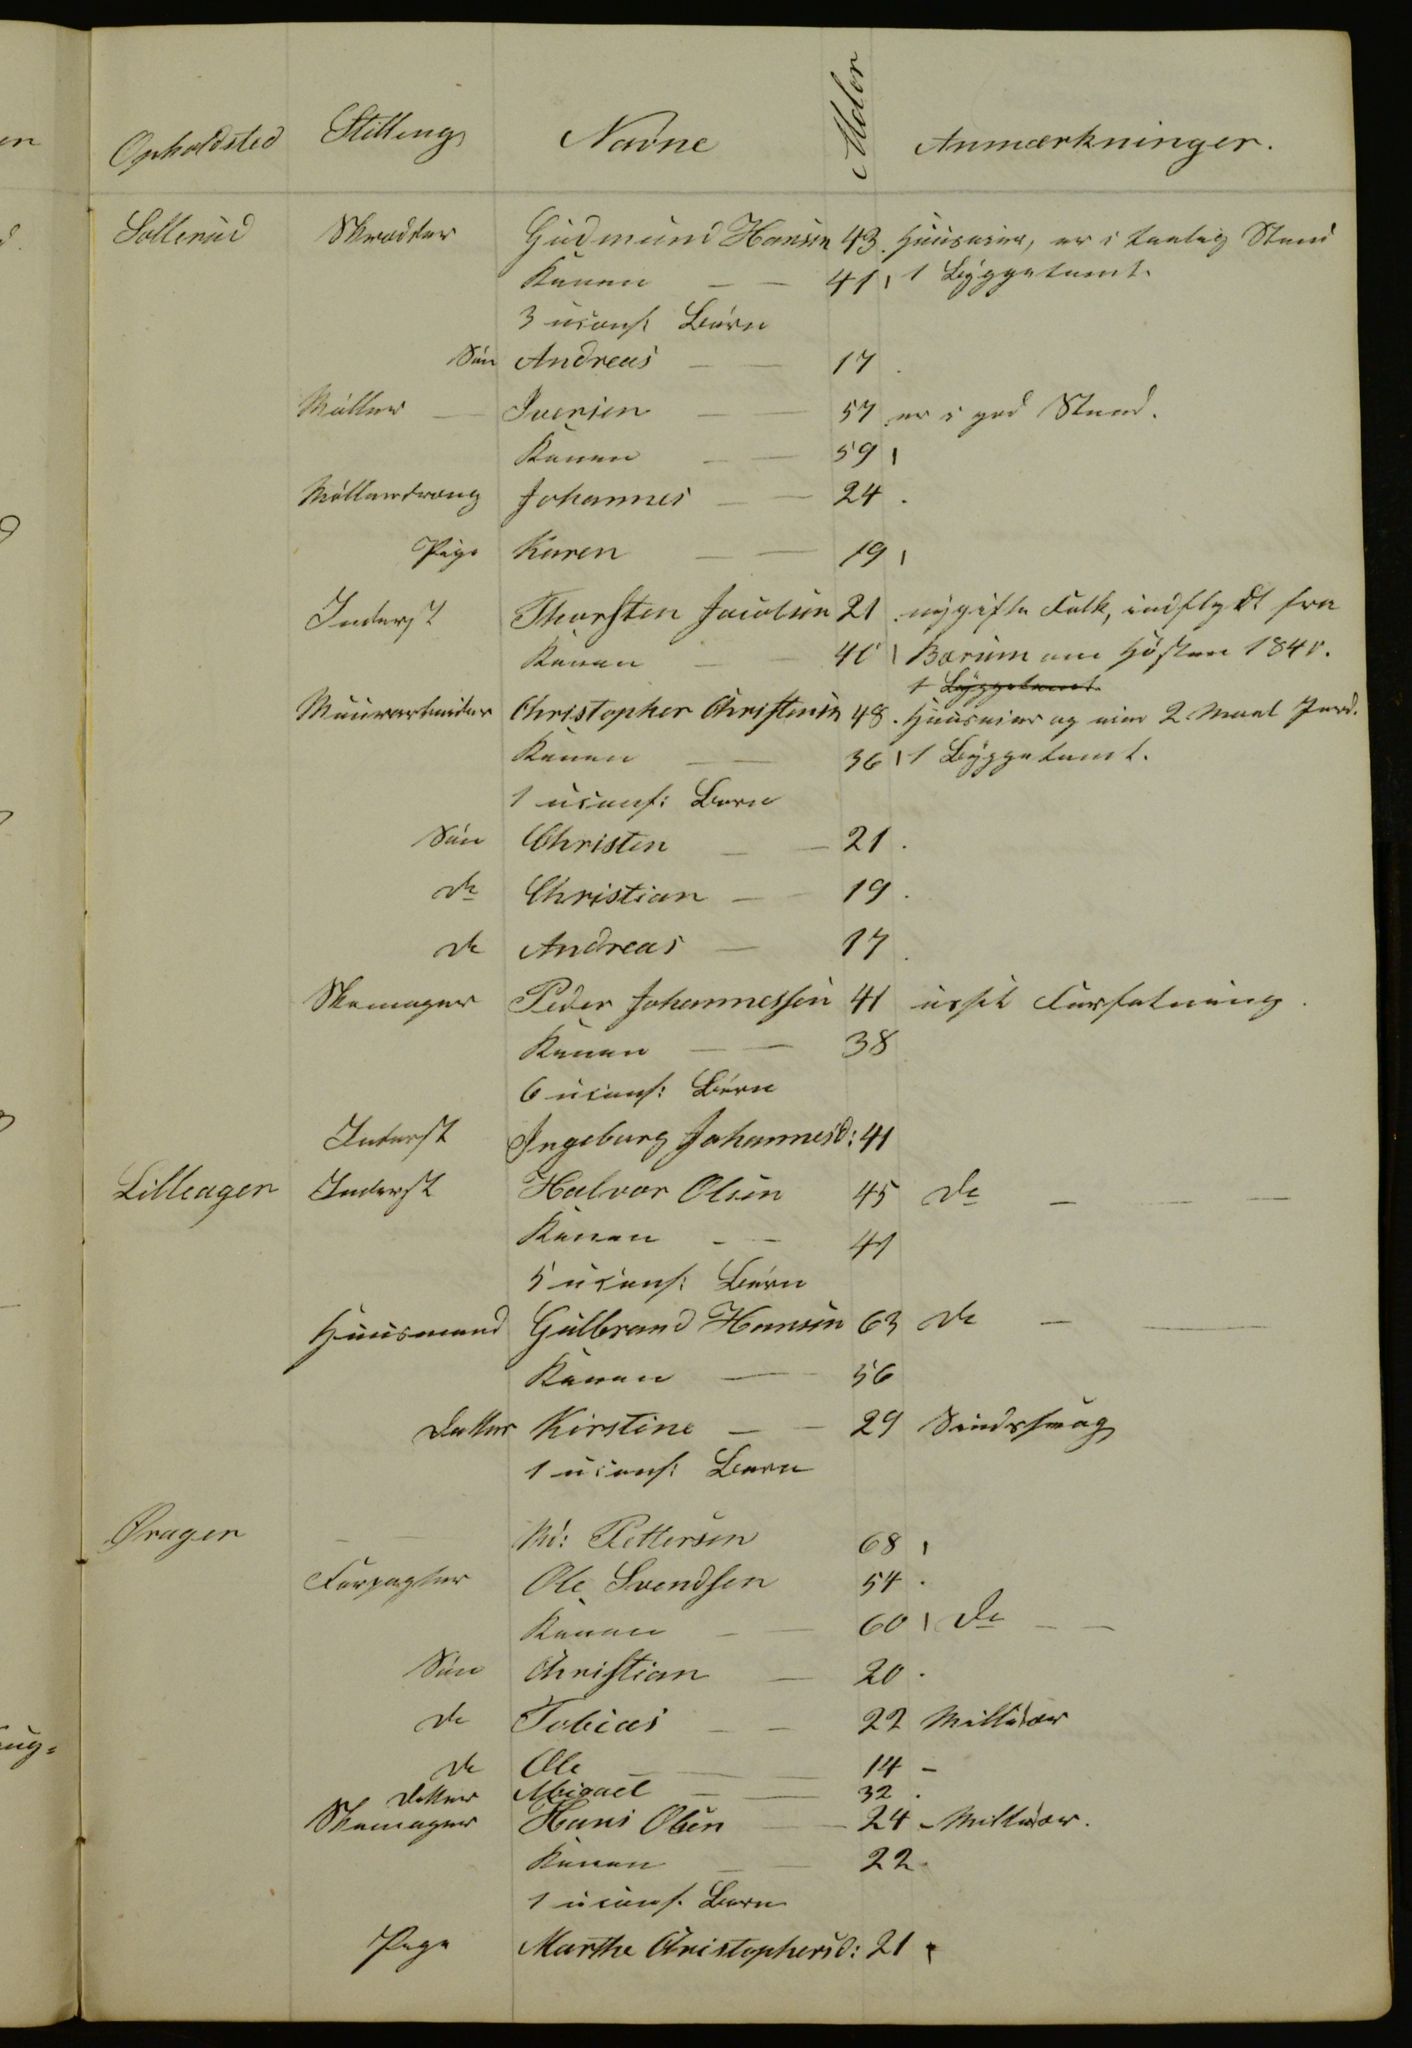 Opholdsted Stilling Navne Alder Anmærkninger.
Sollerud Skrædder Gudmund Hansen 43. Huuseier, er i taalig Stand
Konen — — 41 1 Byggetomt.
3 uconf: Børn
Søn Andreas — — 17.
Møller — Iversen — 57 er i god Stand.
Konen — — 59
Møllerdreng Johannes — — 24.
Pige Karen — — 19
Inderst Thorsten Jacobsen 21. nygifte Folk, indflydt fra
Konen — — 40 Bærum om Høsten 1840.
1 Byggetomt.
Muurarbeider Christopher Christensen 48. Huuseier og eier 2 Maal Jord.
Konen — — 36 1 Byggetomt.
1 uconf: Barn
Søn Christen — — 21.
do Christian — — 19.
do Andreas — 17.
Skomager Peder Johannessen 41 ussel Forfatning.
Konen — — 38
6 uconf: Børn
Inderst Ingeborg Johannesd: 41
Lilleager Inderst Halvor Olsen 45 do — — —
Konen — — 41
5 uconf: Børn
Huusmand Gulbrand Hansen 63 do — —
Konen — 56
Datter Kirstine — — 29 Sindssvag
1 uconf: Barn
Øragen — — Md: Pettersen 68
Forpagter Ole Svendsen 54.
Konen — — 60 do — —
Søn Christian — 20.
do Tobias — — 22 Militær
do Ole — — 14 -
Datter Abigael — — 32.
Skomager Hans Olsen — 24 - Militær.
Konen — — 22.
1 uconf. Barn
Pige Marthe Christophersd: 21